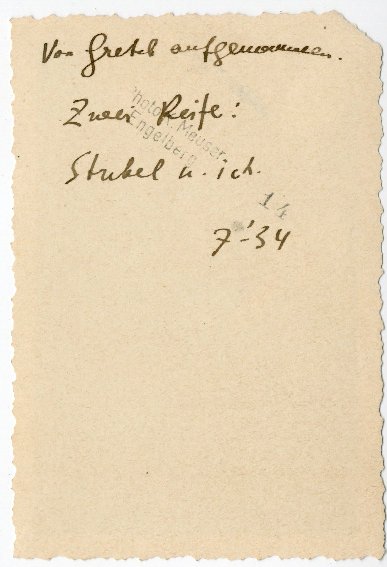 Von Gretel aufgenommen.
Zwei Reife:
Photo Meuser,
Engelberg
Strubel u. ich.
14
7'-34